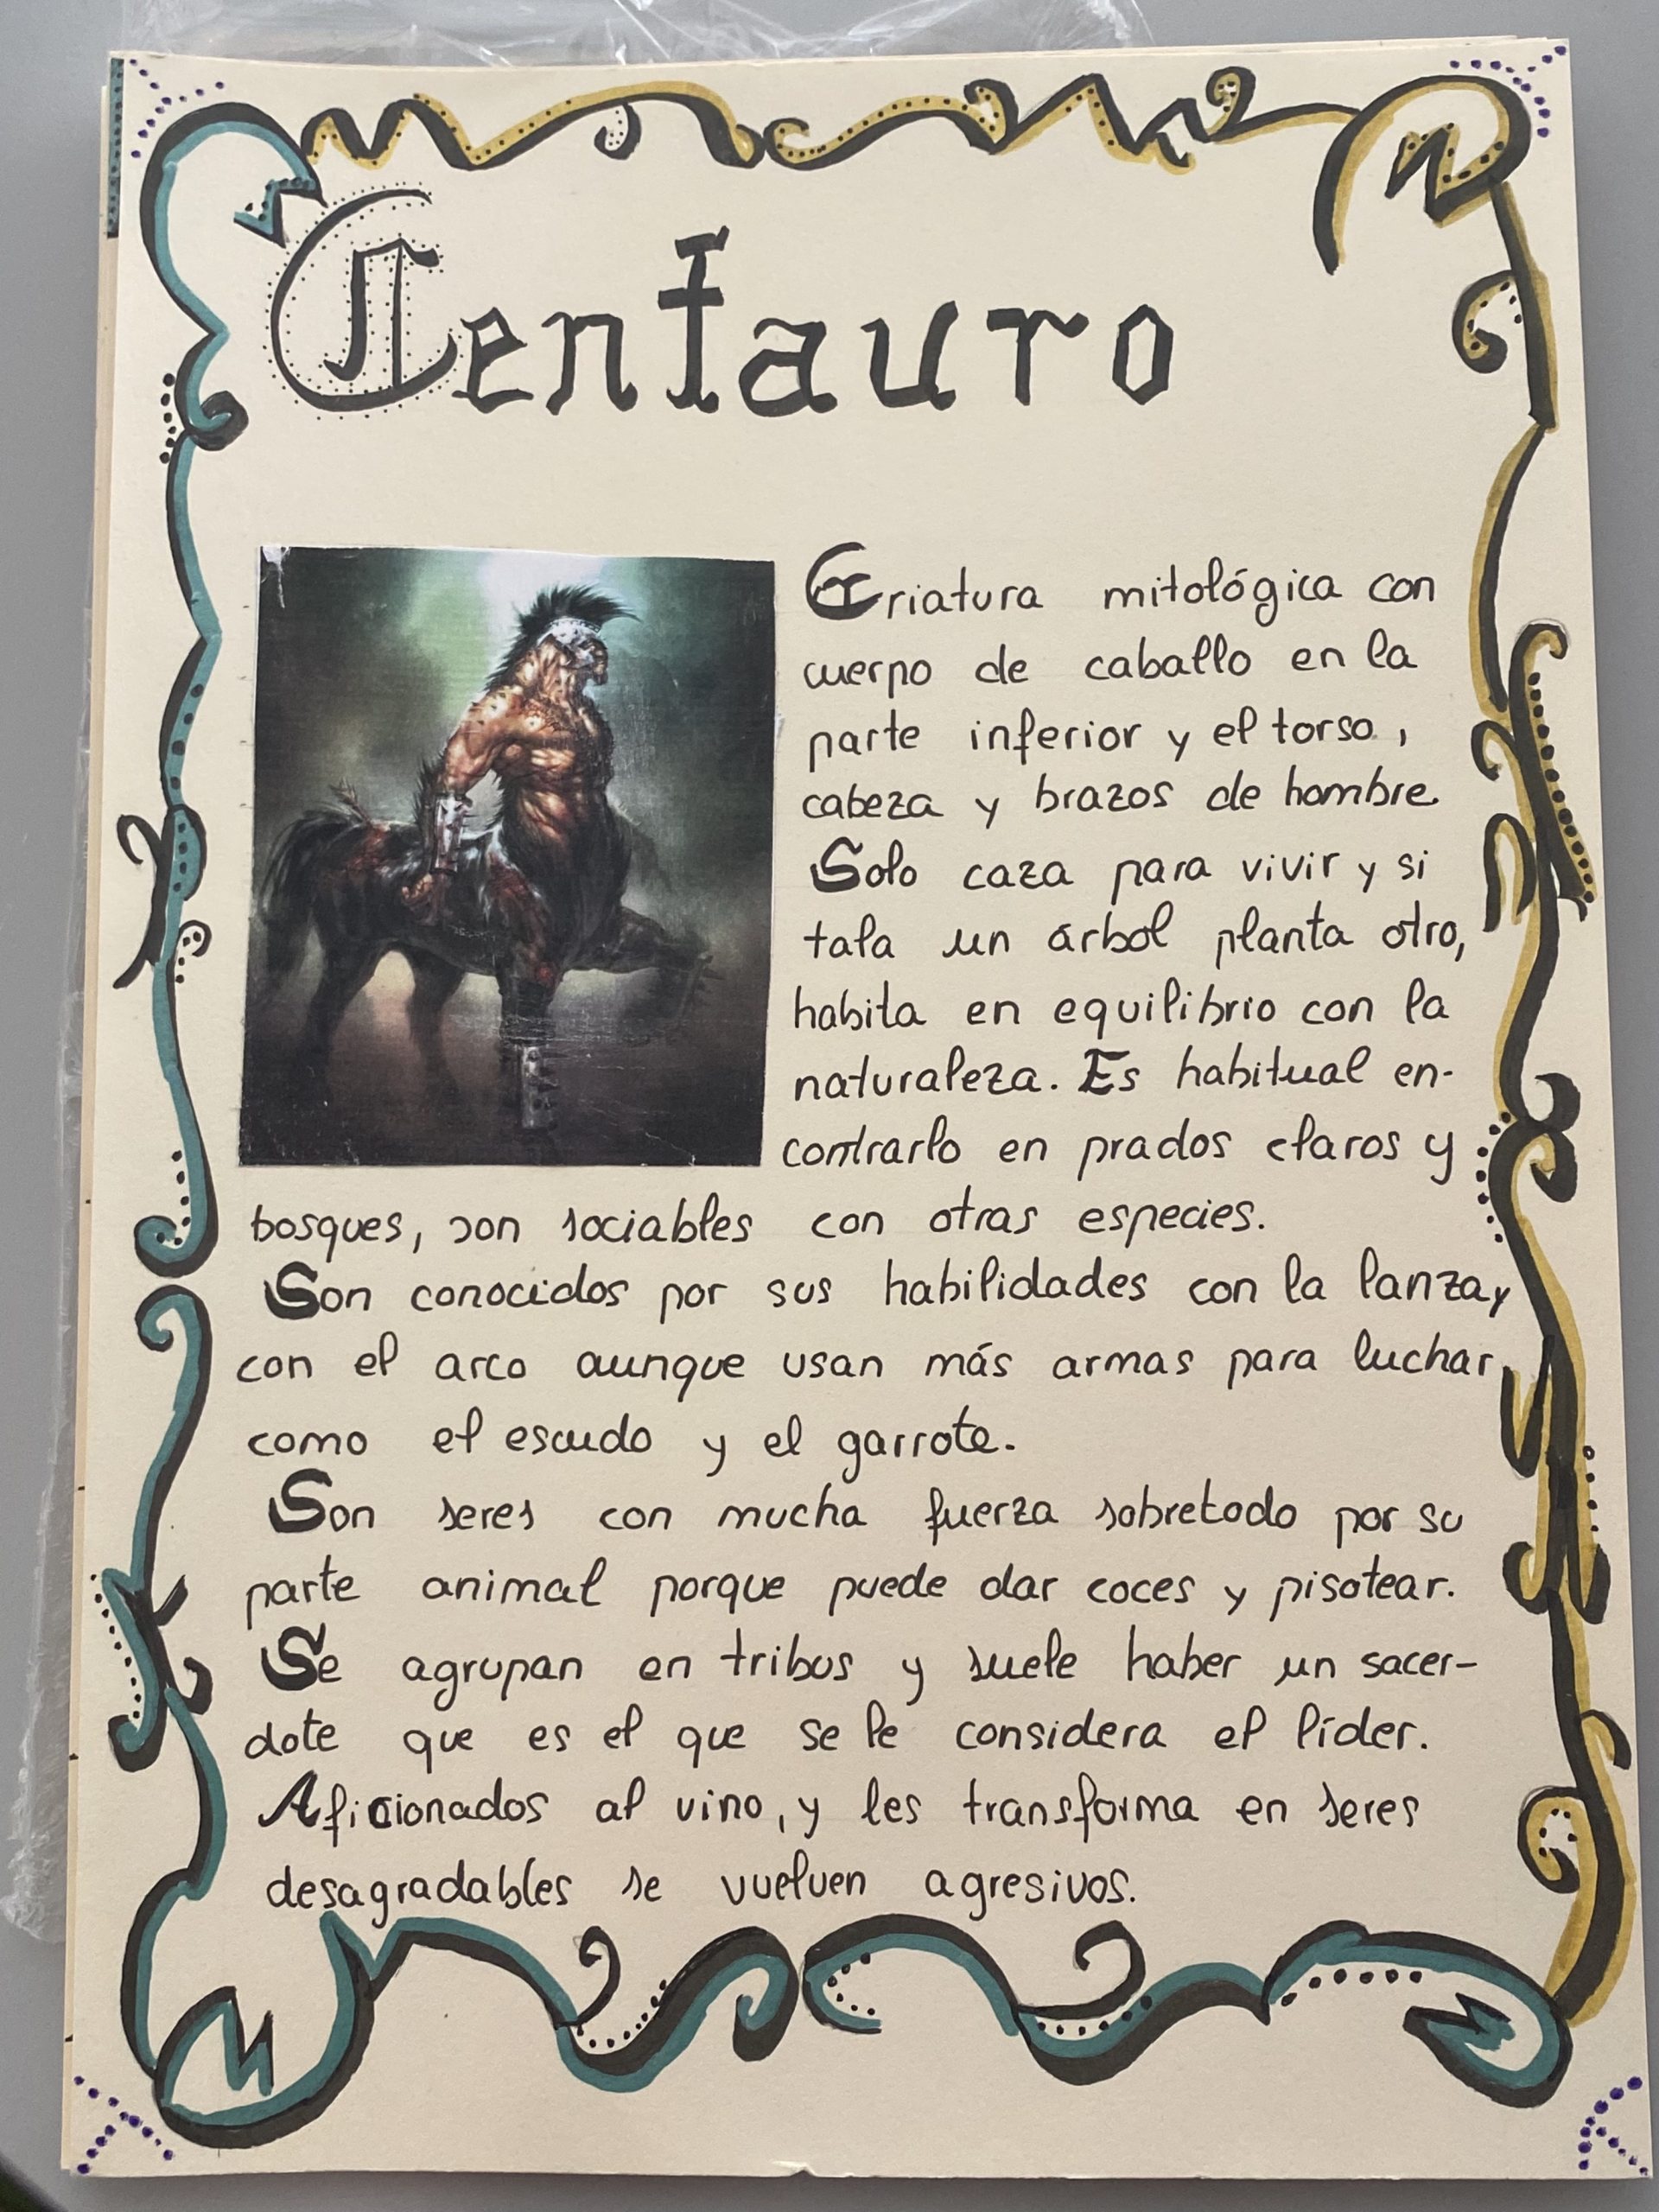 Centauro
Criatura mitológica con
cuerpo de caballo en la
parte inferior y el torso,
cabeza y brazos de hombre.
Solo caza para vivir y si
tala un árbol planta otro,
habita en equilibrio con la
naturaleza. Es habitual en-
contrarlo en prados claros y
bosques, son sociables con otras especies.
Son conocidos por sus habilidades con la lanza y
con el arco aunque usan más armas para luchar,
como el escudo y el garrote.
Son seres con mucha fuerza sobretodo por su
parte animal porque puede dar coces y pisotear.
Se agrupan en tribus y suele haber un sacer-
dote que es el que se le considera el líder.
Aficionados al vino, y les transforma en seres
desagradables se vuelven agresivos.